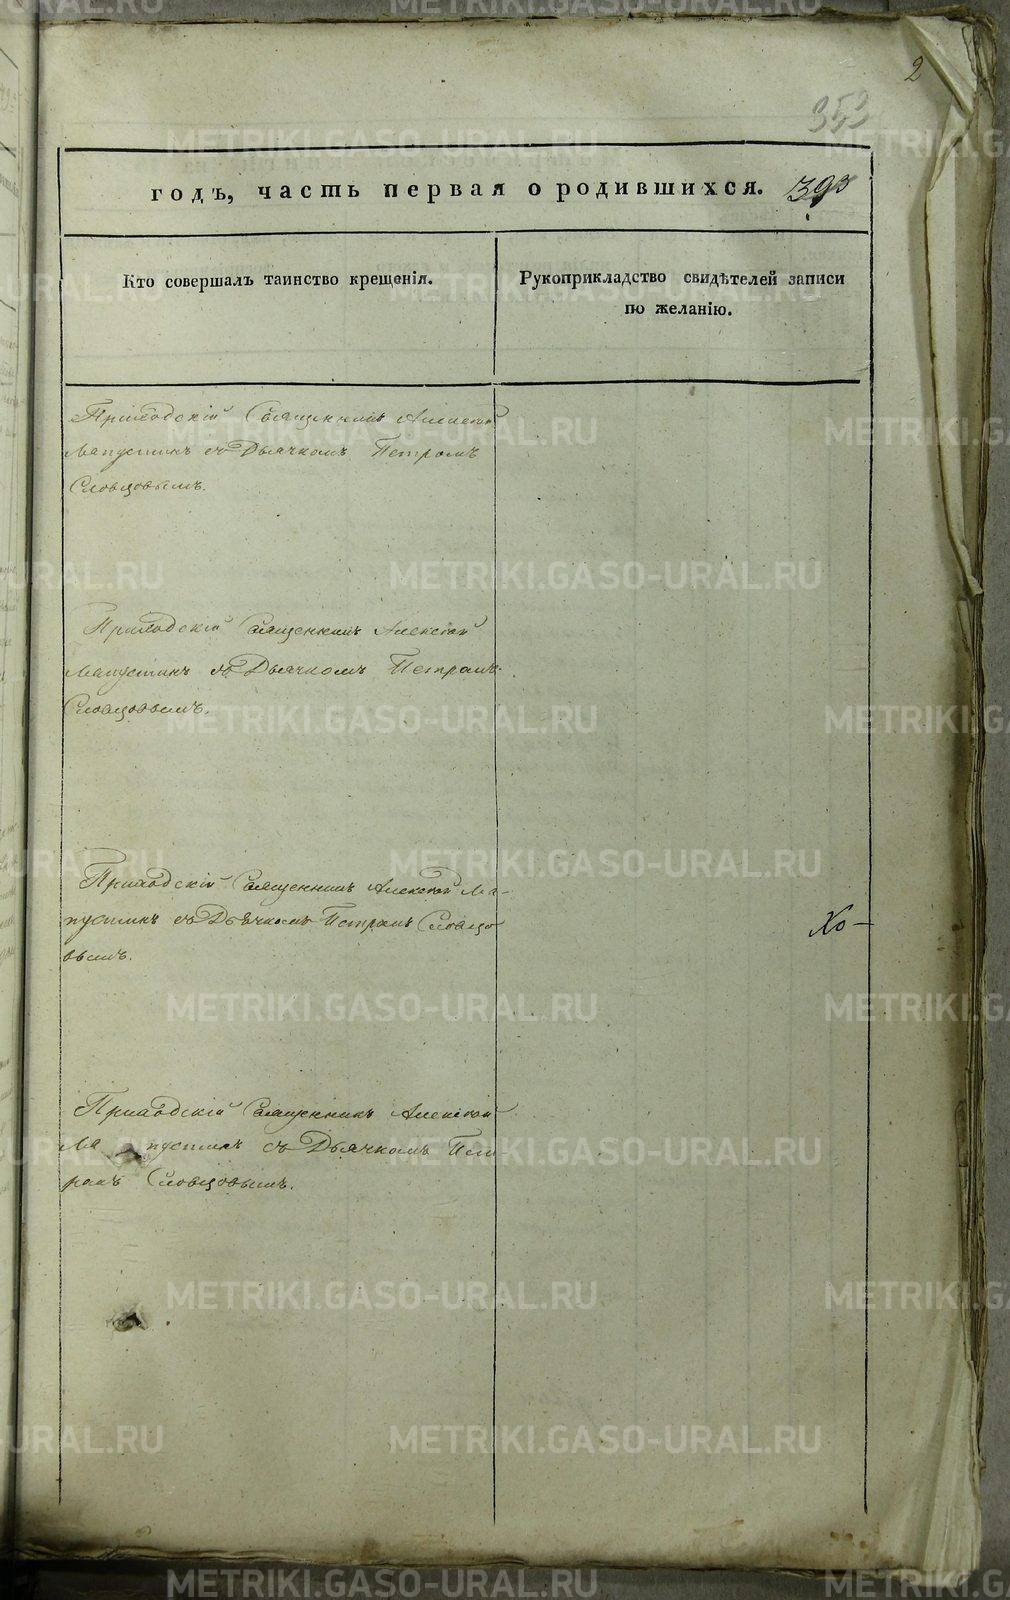 2
353
годъ, часть первая о родившихся. 393
Кто совершалъ таинство крещенія.
Рукоприкладство свидѣтелей записи
по желанію.
Приходскій Священникъ Алексѣй
Мапустинъ съ Дьячкомъ Петромъ
Словцовымъ.
Приходскій Священникъ Алексѣй
Мапустинъ съ Дьячкомъ Петромъ
Словцовымъ.
Приходскій Священникъ Алексѣй Ма-
пустинъ съ Дьячкомъ Петромъ Словцо
вымъ.
Хо-
Приходскій Священникъ Алексѣй
Ма пустинъ съ Дьячкомъ Пет
ромъ Словцовымъ.
METRIKI.GASO-URAL.RU